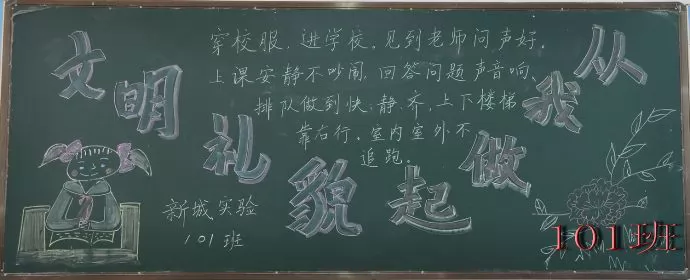 文明礼貌
从我做起
穿校服,进学校。见到老师问声好。
上课安静不吵闹,回答问题声音响、
排队做到快、静、齐,上下楼梯
靠右行,室内室外不
追跑。
新城实验
101班
101班